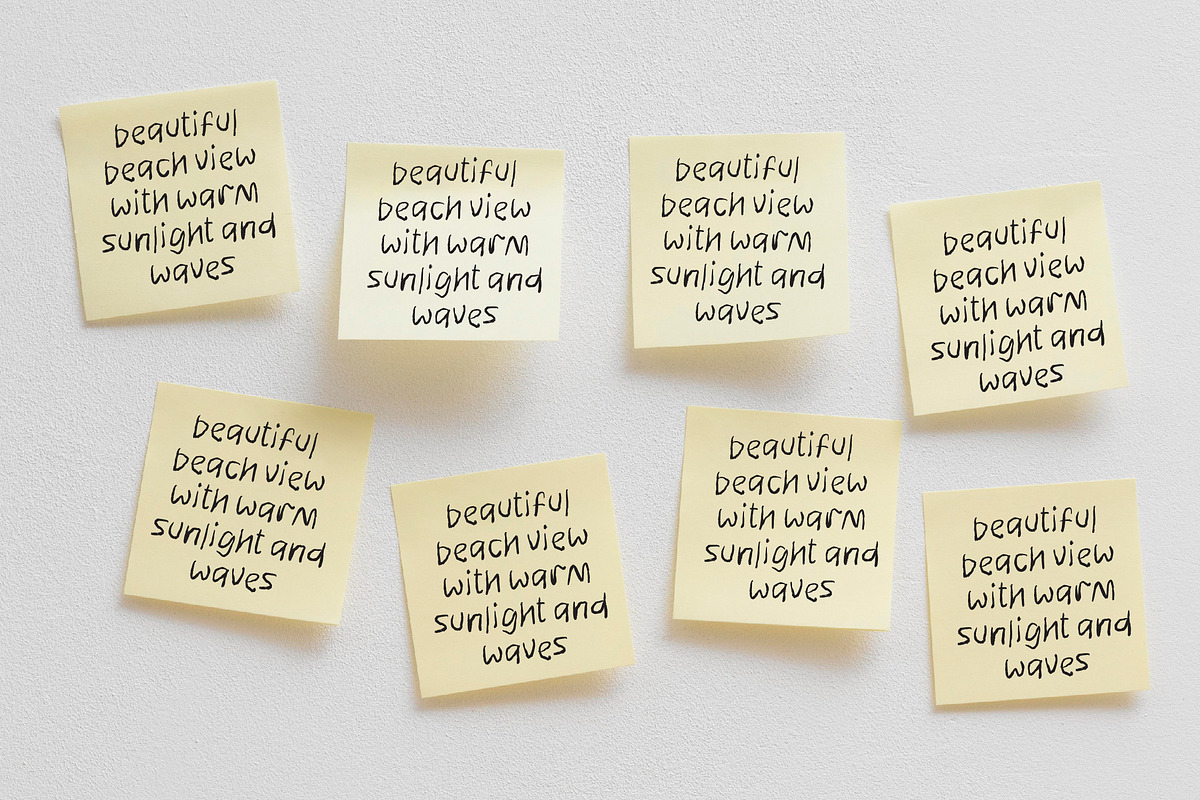 beautiful
beach view
with warm
sunlight and
waves
beautiful
beach view
with warm
sunlight and
waves
beautiful
beach view
with warm
sunlight and
waves
beautiful
beach view
with warm
sunlight and
waves
beautiful
beach view
with warm
sunlight and
waves
beautiful
beach view
with warm
sunlight and
waves
beautiful
beach view
with warm
sunlight and
waves
beautiful
beach view
with warm
sunlight and
waves